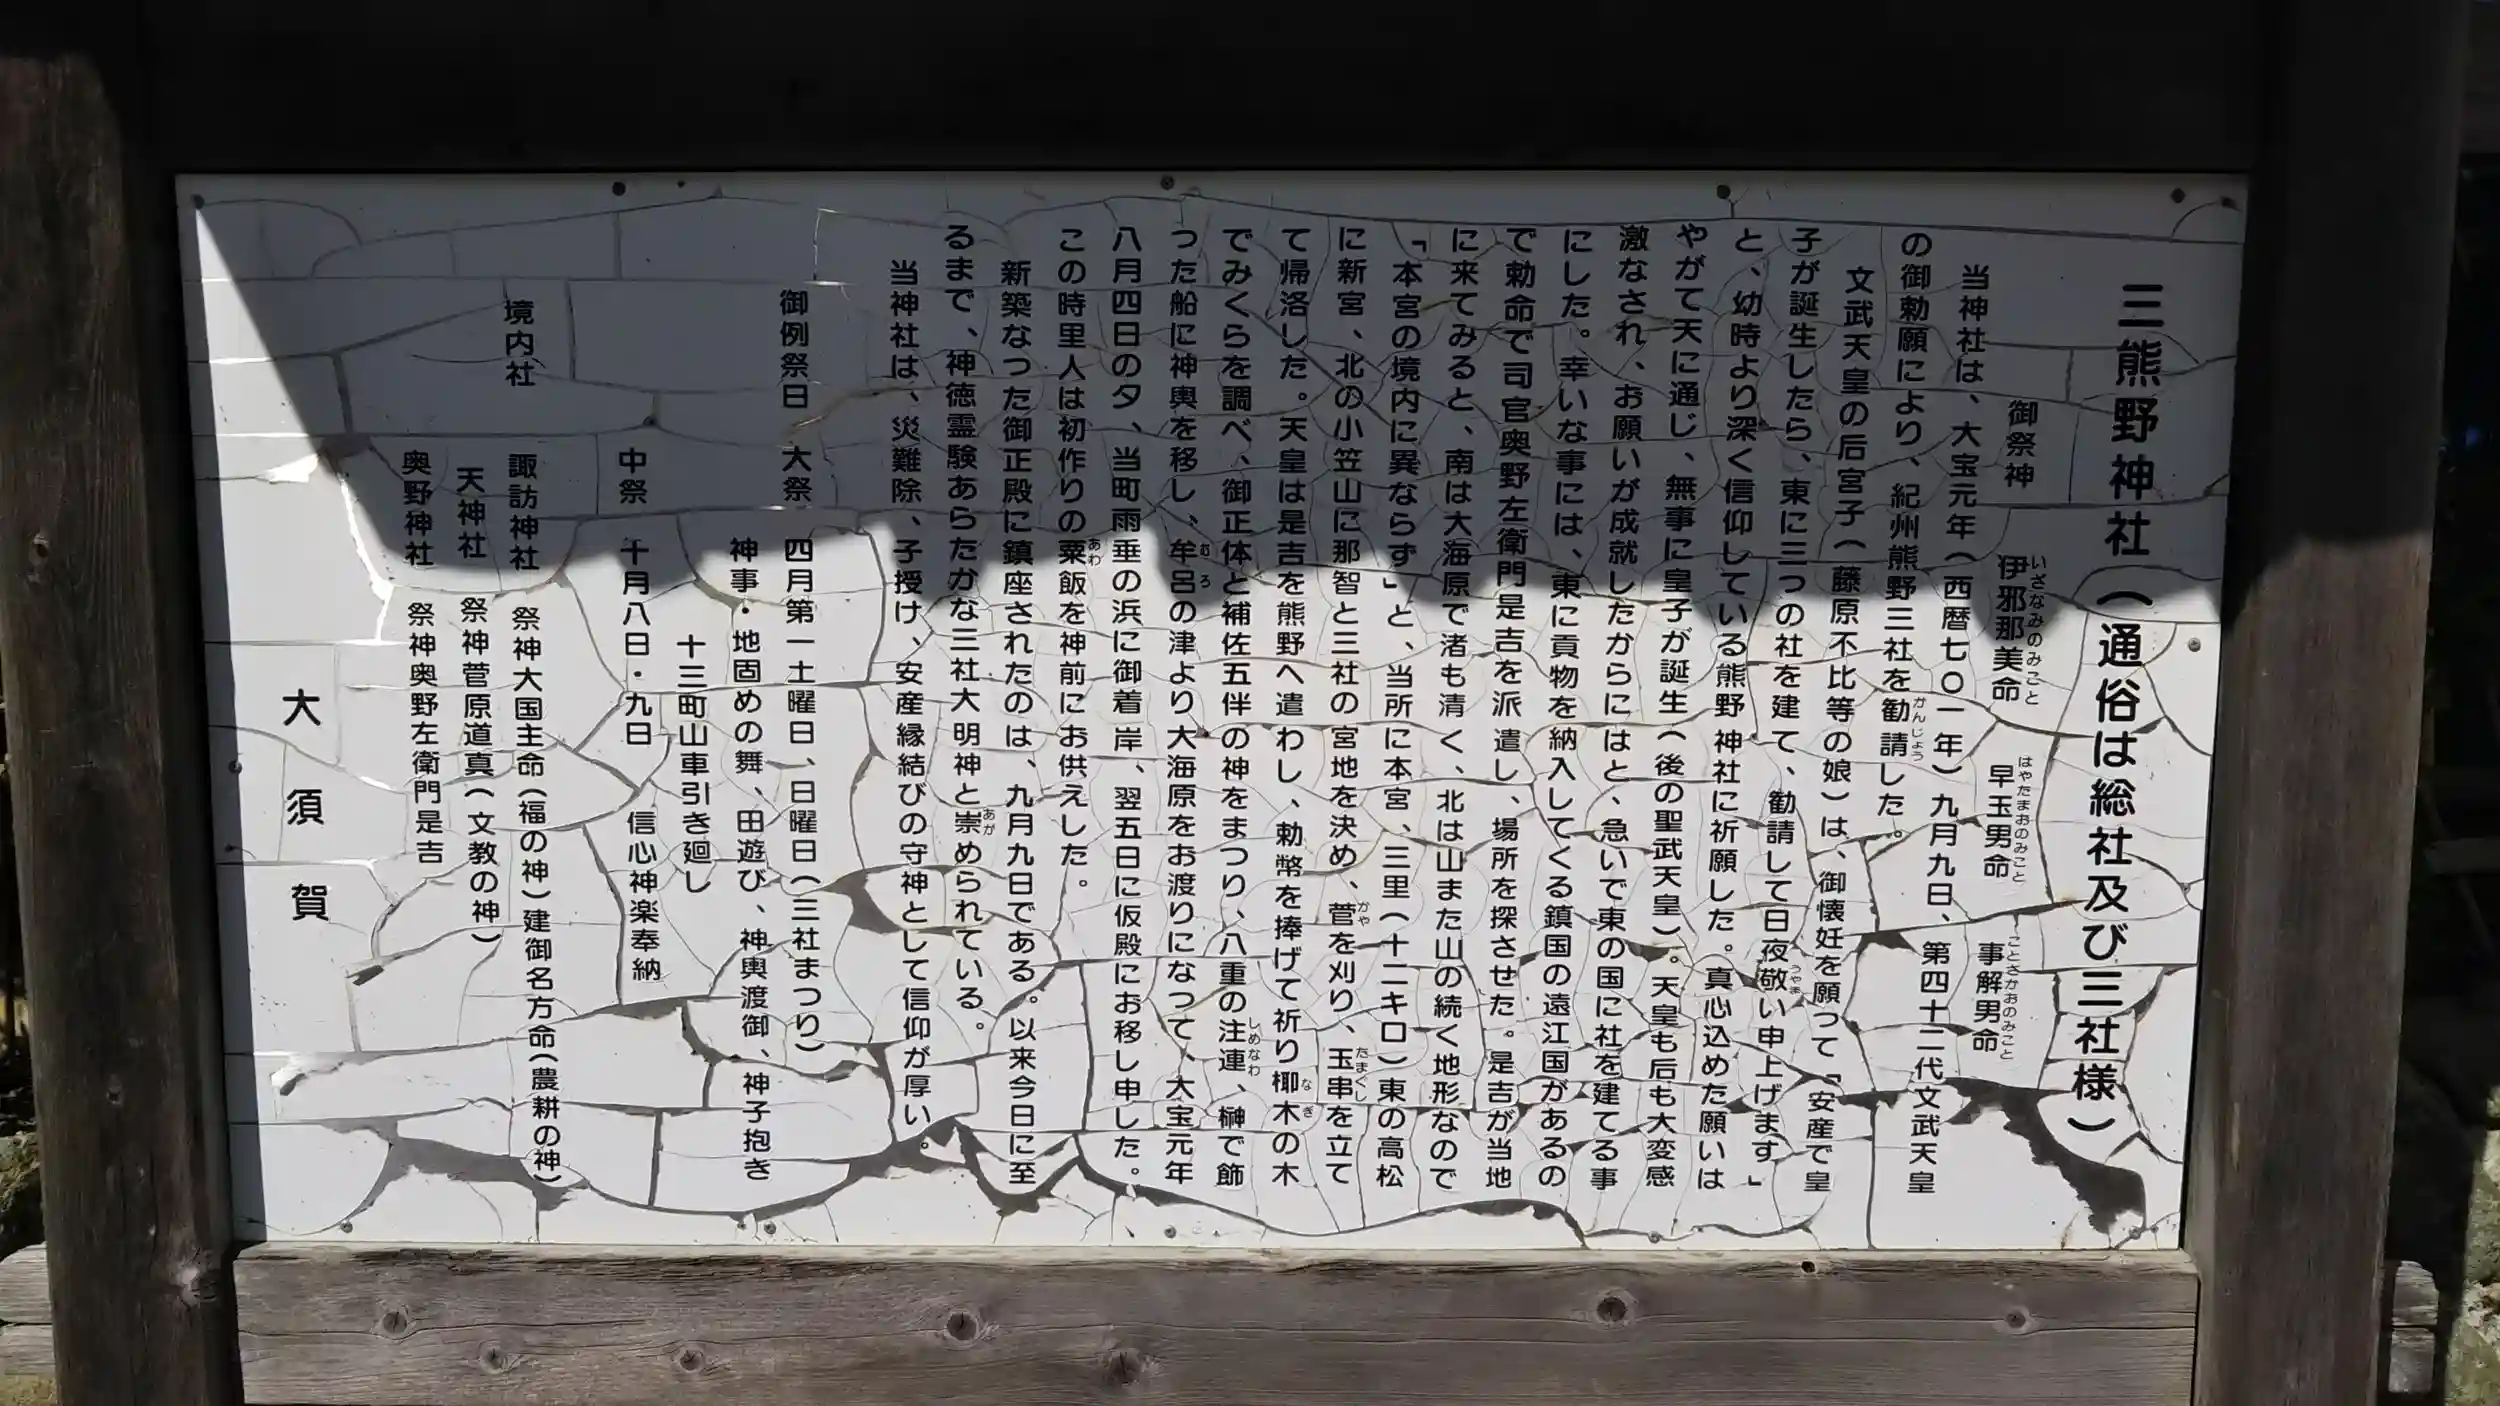 三熊野神社(通俗は総社及び三社様)
御祭神 伊邪那美命 早玉男命 事解男命
いざなみのみこと はやたまおのみこと ことさかおのみこと
当神社は、大宝元年(西暦七〇一年)九月九日、第四十二代文武天皇
の御勅願により、紀州熊野三社を勧請した。
かんじょう
文武天皇の后宮子(藤原不比等の娘)は、御懐妊を願って「安産で皇
子が誕生したら、東に三つの社を建て、勧請して日夜敬い申上げます」
うやま
と、幼時より深く信仰している熊野神社に祈願した。真心込めた願いは
やがて天に通じ、無事に皇子が誕生(後の聖武天皇)。天皇も后も大変感
激なされ、お願いが成就したからにはと、急いで東の国に社を建てる事
にした。幸いな事には、東に貢物を納入してくる鎮国の遠江国があるの
で勅命で司官奥野左衛門是吉を派遣し、場所を探させた。是吉が当地
に来てみると、南は大海原で渚も清く、北は山また山の続く地形なので
「本宮の境内に異ならず」と、当所に本宮、三里(十二キロ)東の高松
に新宮、北の小笠山に那智と三社の宮地を決め、菅を刈り、玉串を立て
かや たまぐし
て帰洛した。天皇は是吉を熊野へ遣わし、勅幣を捧げて祈り梛木の木
なぎ
でみくらを調べ、御正体と補佐五伴の神をまつり、八重の注連、榊で飾
しめなわ
った船に神輿を移し、牟呂の津より大海原をお渡りになって、大宝元年
むろ
八月四日の夕、当町雨垂の浜に御着岸、翌五日に仮殿にお移し申した。
この時里人は初作りの粟飯を神前にお供えした。
あわ
新築なった御正殿に鎮座されたのは、九月九日である。以来今日に至
るまで、神徳霊験あらたかな三社大明神と崇められている。
あが
当神社は、災難除、子授け、安産縁結びの守神として信仰が厚い。
御例祭日 大祭 四月第一土曜日、日曜日(三社まつり)
神事・地固めの舞、田遊び、神輿渡御、神子抱き
十三町山車引き廻し
中祭 十月八日・九日 信心神楽奉納
境内社 諏訪神社 祭神大国主命(福の神)建御名方命(農耕の神)
天神社 祭神菅原道真(文教の神)
奥野神社 祭神奥野左衛門是吉
大須賀